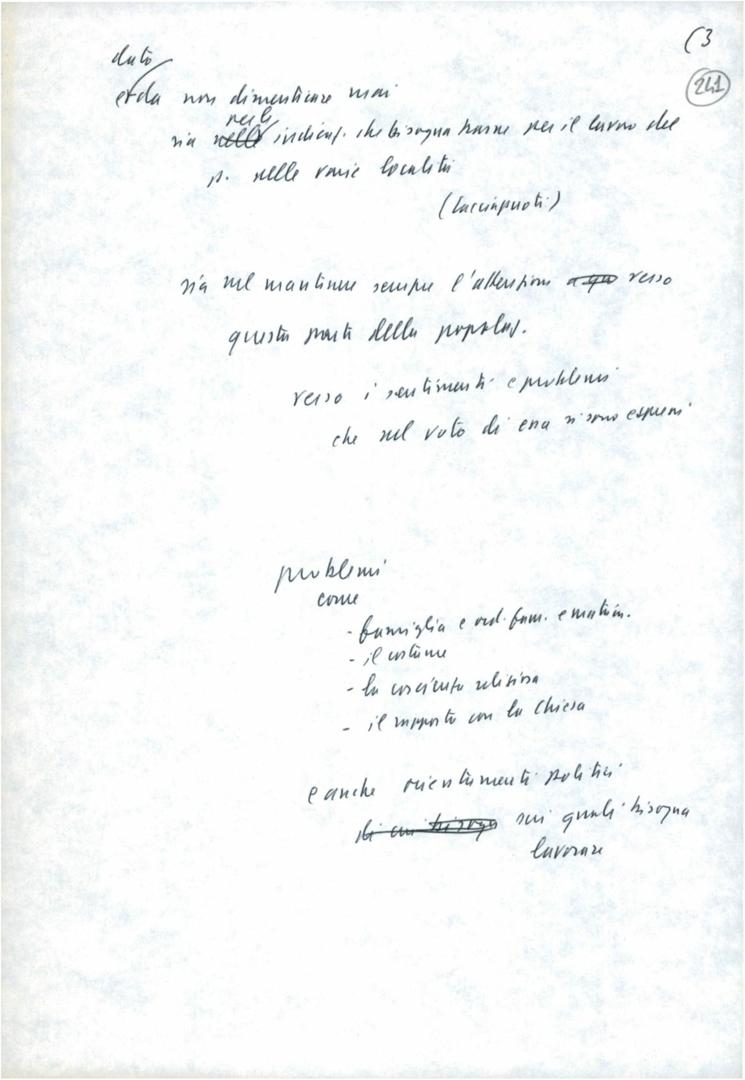 (3
241
dato
e da non dimenticare mai
sia nelle negli indicaz. che bisogna trarne per il lavoro del
p. nelle varie località
(Cacciapuoti)
sia nel mantenere sempre l'attenzione verso
questa parte della popolaz.
verso i sentimenti e problemi
che nel voto di essa si sono espressi
problemi
come
- famiglia e ord. fam. e matrim.
- il costume
- la coscienza religiosa
- il rapporto con la Chiesa
e anche orientamenti politici
di cui bisogna sui quali bisogna
lavorare